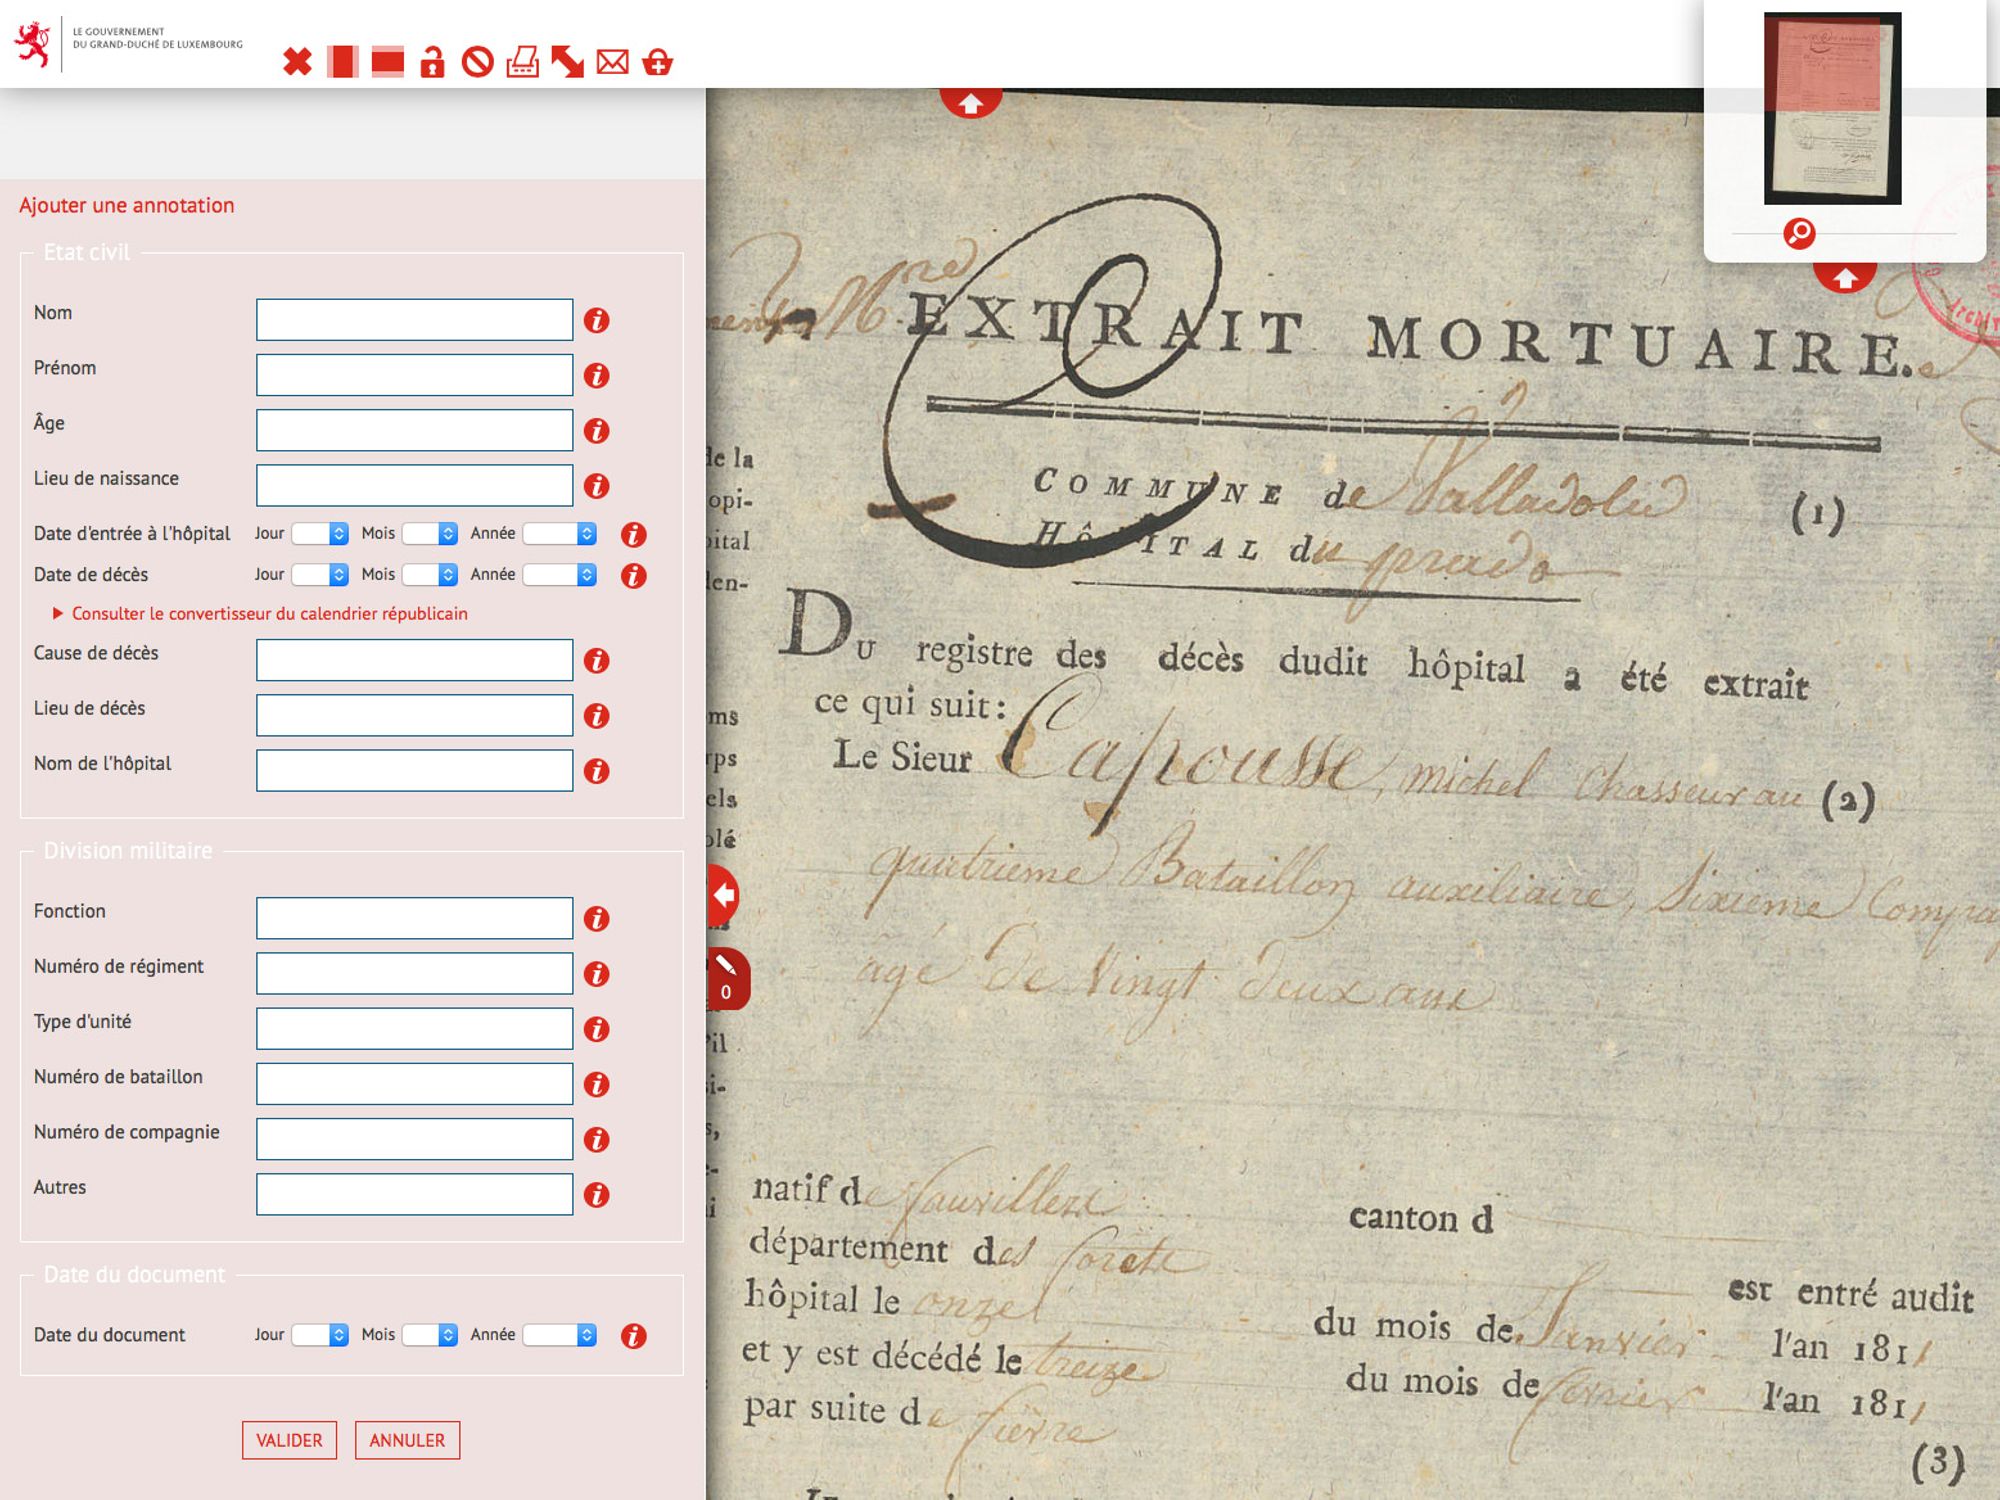 LE GOUVERNEMENT
DU GRAND-DUCHÉ DE LUXEMBOURG
Ajouter une annotation
Etat civil
Nom
Prénom
Âge
Lieu de naissance
Date d'entrée à l'hôpital Jour Mois Année
Date de décès Jour Mois Année
Consulter le convertisseur du calendrier républicain
Cause de décès
Lieu de décès
Nom de l'hôpital
Division militaire
Fonction
Numéro de régiment
Type d'unité
Numéro de bataillon
Numéro de compagnie
Autres
Date du document
Date du document Jour Mois Année
VALIDER ANNULER
0
EXTRAIT MORTUAIRE.
COMMUNE de Valladolid (1)
HÔPITAL du prado
DU registre des décès dudit hôpital a été extrait
ce qui suit:
Le Sieur Capousse, michel Chasseur au (2)
quatrieme Bataillon auxiliaire, Sixieme Compa
agé de Vingt deux ans
natif de fauvillers canton d
département des Forets est entré audit
hôpital le onze du mois de Janvier l'an 1811
et y est décédé le treize du mois de fevrier l'an 1811
par suite de fièvre
(3)
de la
opi-
pital
den-
ms
rps
els
olé
'il
si-
s,